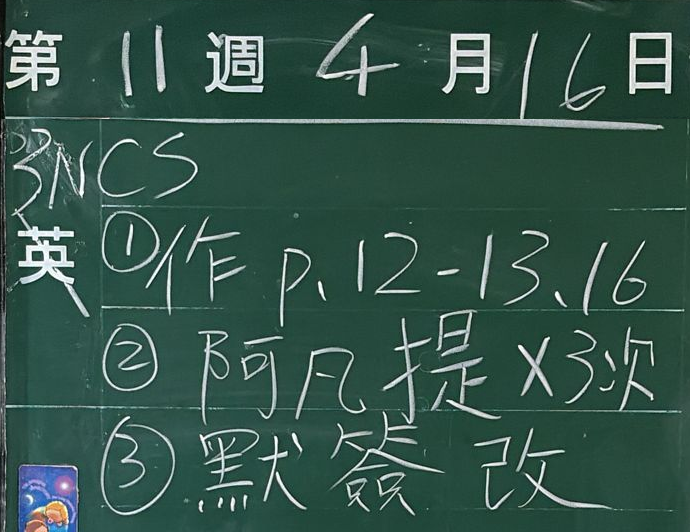 第 11 週 4 月 16 日
CS
英
①作 p.12-13、16
②阿凡提×3次
③默簽改